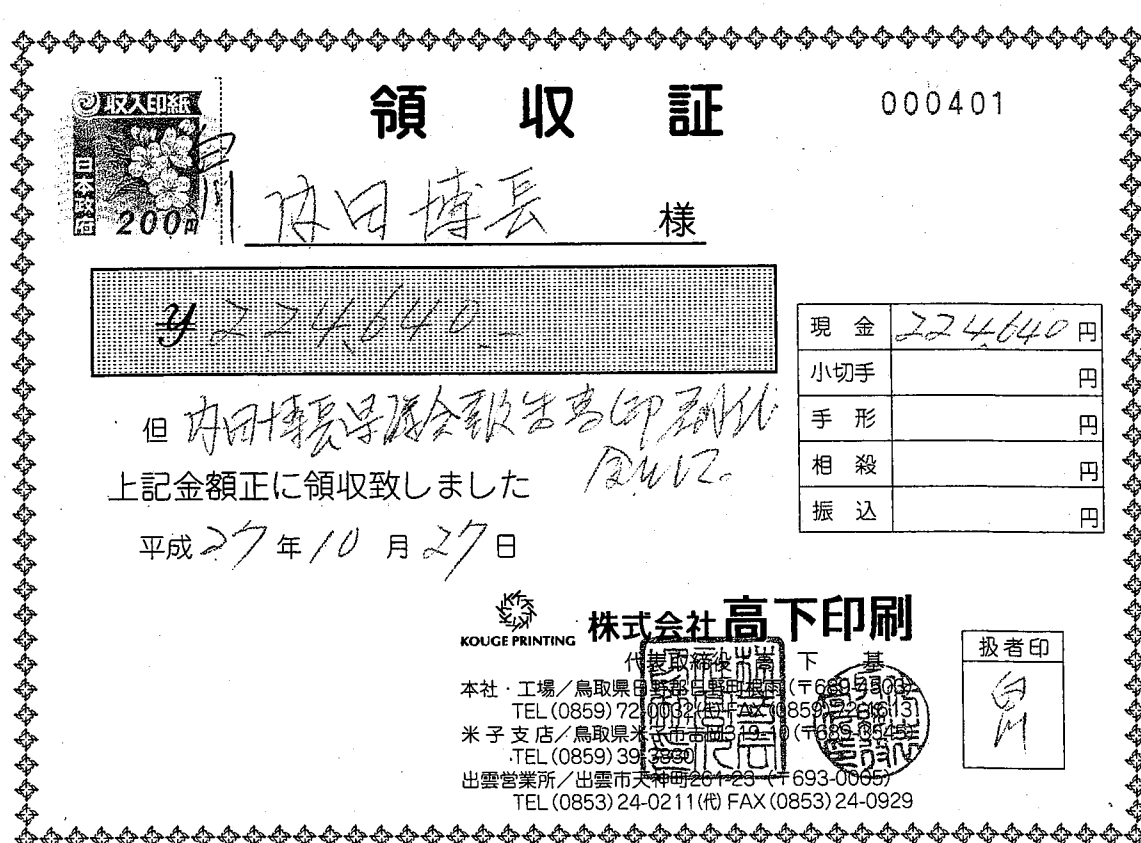 収入印紙
日本政府
200円
白川
領収証
000401
内田博長 様
¥224,640.-
現金 224,640円
小切手 円
手形 円
相殺 円
振込 円
但 内田博長県議会報告書印刷代
として。
上記金額正に領収致しました
平成27年10月27日
KOUGE PRINTING
株式会社高下印刷
代表取締役 高下 基
本社・工場/鳥取県日野郡日野町根雨(〒689-4503)
TEL(0859)72-0032(代) FAX(0859)
米子支店/鳥取県米子市吉岡319-10(〒689-3545)
TEL(0859)39-3830
出雲営業所/出雲市天神町261-23 (〒693-0005)
TEL(0853)24-0211(代) FAX(0853)24-0929
扱者印
白川